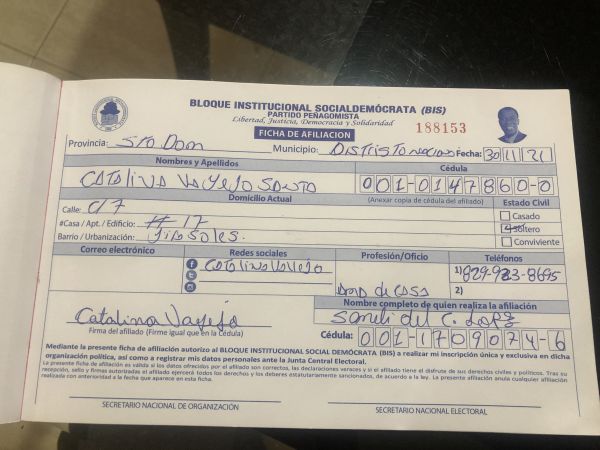 BLOQUE INSTITUCIONAL SOCIALDEMÓCRATA (BIS)
PARTIDO PEÑAGOMISTA
Libertad, Justicia, Democracia y Solidaridad
FICHA DE AFILIACIÓN
188153
Provincia: Sto Dom Municipio: Distristo Fecha: 30 11 21
Nombres y Apellidos Cédula
Catalina Santo 001-0147860-0
Domicilio Actual (Anexar copia de cédula del afiliado) Estado Civil
Calle: C/7 Casado
#Casa / Apt. / Edificio: # 17 Soltero
Barrio / Urbanización: Jirasoles. Conviviente
Correo electrónico Redes sociales Profesión/Oficio Teléfonos
Catalina Vallejo 1) 829-923-8695
de casa 2)
Nombre completo de quien realiza la afiliación
Catalina del C. Lopez
Firma del afiliado (Firme igual que en la Cédula) Cédula: 001-1709074-6
Mediante la presente ficha de afiliación autorizo al BLOQUE INSTITUCIONAL SOCIAL DEMÓCRATA (BIS) a realizar mi inscripción única y exclusiva en dicha
organización política, así como a registrar mis datos personales ante la Junta Central Electoral.
La presente ficha de afiliación es válida si los datos ofrecidos por el afiliado son correctos, las declaraciones veraces y si el afiliado tiene el disfrute de sus derechos civiles y políticos. Tras su
recepción, sello y firmas autorizadas el afiliado ejercerá todos los derechos y los deberes estatutariamente sancionados, de acuerdo a la ley. La presente afiliación anula cualquier afiliación
realizada con anterioridad a la fecha que aparece en esta ficha.
SECRETARIO NACIONAL DE ORGANIZACIÓN SECRETARIO NACIONAL ELECTORAL